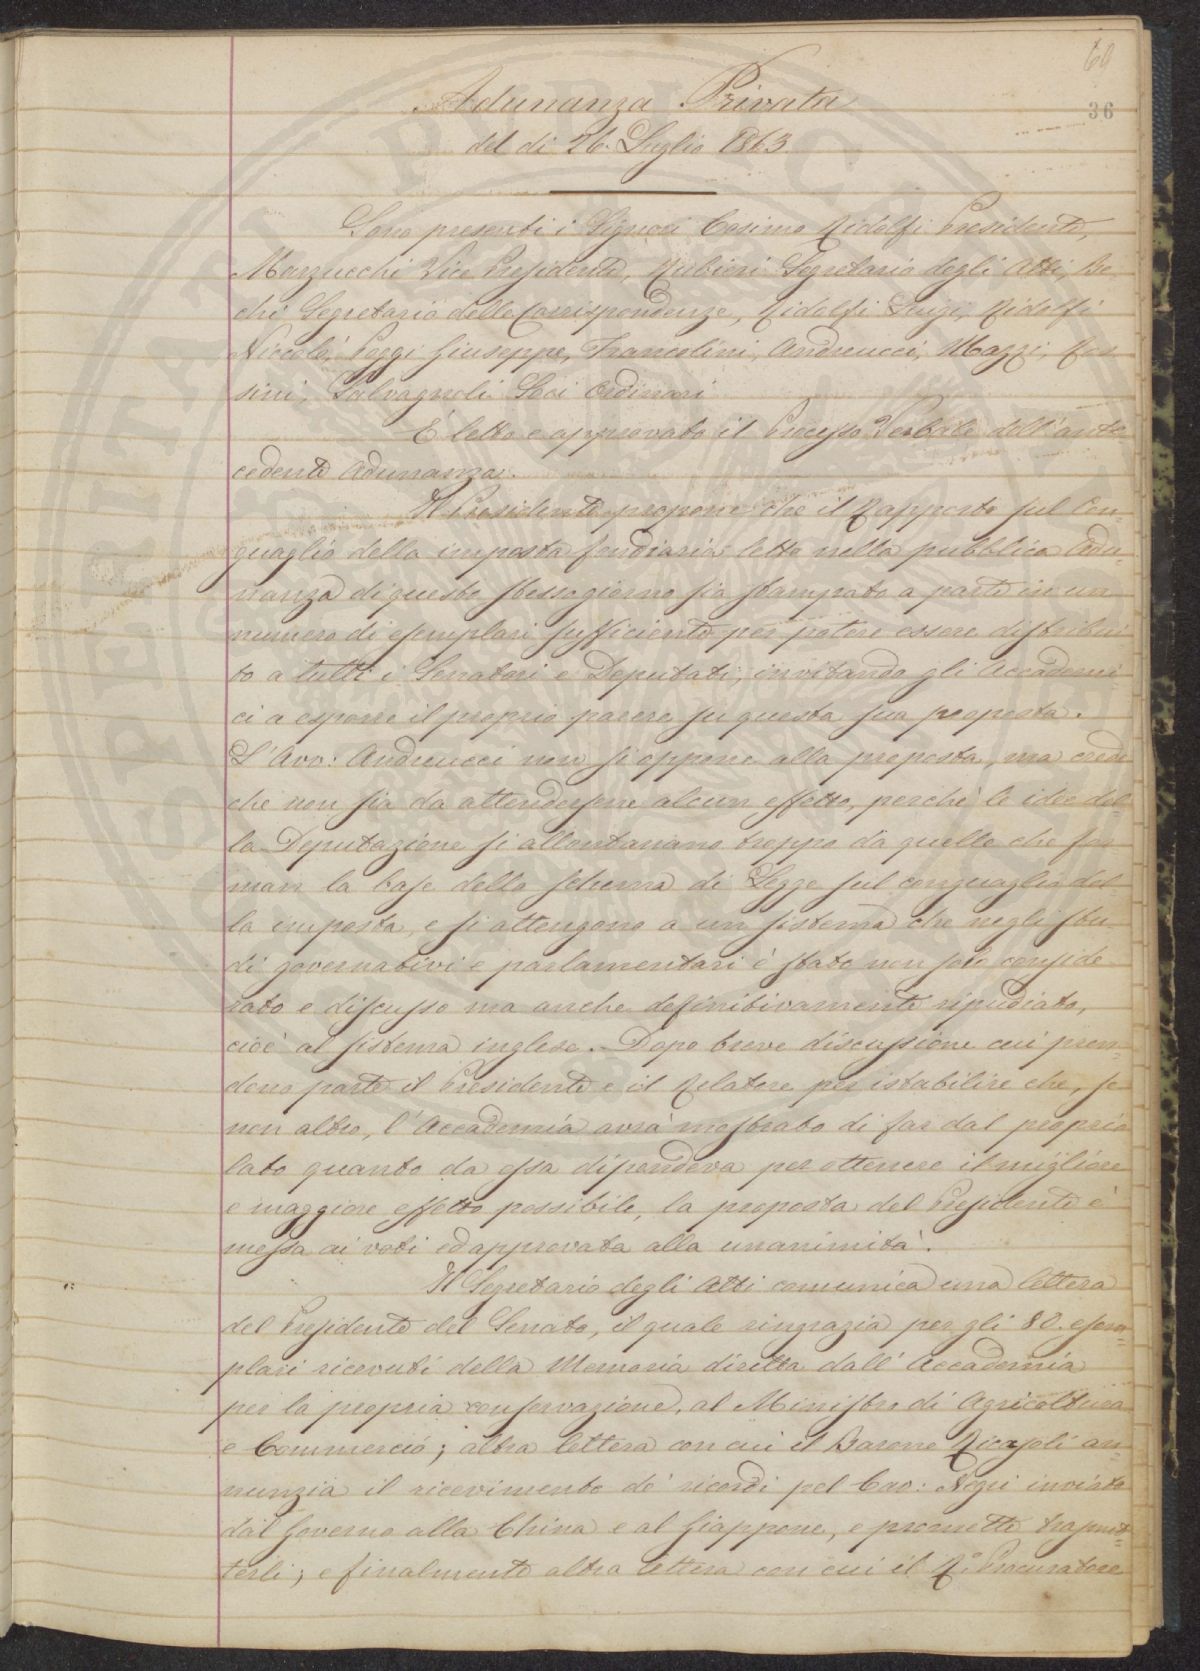 60
36
Adunanza Privata
del dì 26. Luglio 1863
Sono presenti i Signori Cosimo Ridolfi Presidente,
Marzucchi Vice Presidente, Rubieri Segretario degli Atti, Be-
chi Segretario delle Corrispondenze, Ridolfi Luigi, Ridolfi
Niccolò, Poggi Giuseppe, Francolini, Andreucci, Mazzi, Ros-
sini, Salvagnoli Soci Ordinari
È letto e approvato il Processo Verbale dell'ante
cedente Adunanza.
Il Presidente propone che il Rapporto sul Con-
guaglio della imposta fondiaria letto nella pubblica Adu-
nanza di questo stesso giorno sia stampato a parte in un
numero di esemplari sufficiente per potere essere distribui-
to a tutti i Senatori e Deputati; invitando gli Accademi-
ci a esporre il proprio parere su questa sua proposta.
L'Avv: Andreucci non si oppone alla proposta, ma crede
che non sia da attendersene alcun effetto, perchè le idee del-
la Deputazione si allontanano troppo da quelle che for
man la base dello schema di Legge sul conguaglio del-
la imposta, e si attengono a un sistema che negli stu-
di governativi e parlamentari è stato non solo conside-
rato e discusso ma anche definitivamente ripudiato,
cioè al sistema inglese. Dopo breve discussione cui pren-
dono parte il Presidente e il Relatore per istabilire che, se
non altro, l'Accademia avrà mostrato di far dal proprio
lato quanto da essa dipendeva per ottenere il migliore
e maggiore effetto possibile, la proposta del Presidente è
messa ai voti ed approvata alla unanimità.
Il Segretario degli Atti comunica una lettera
del Presidente del Senato, il quale ringrazia per gli 80. esem-
plari ricevuti della Memoria diretta dall'Accademia
per la propria conservazione, al Ministro di Agricoltura
e Commercio; altra lettera con cui il Barone Ricasoli an-
nunzia il ricevimento de' ricordi pel Cav: Negri inviato
dal Governo alla China e al Giappone, e promette trasmet-
terli; e finalmente altra lettera con cui il R.º Procuratore